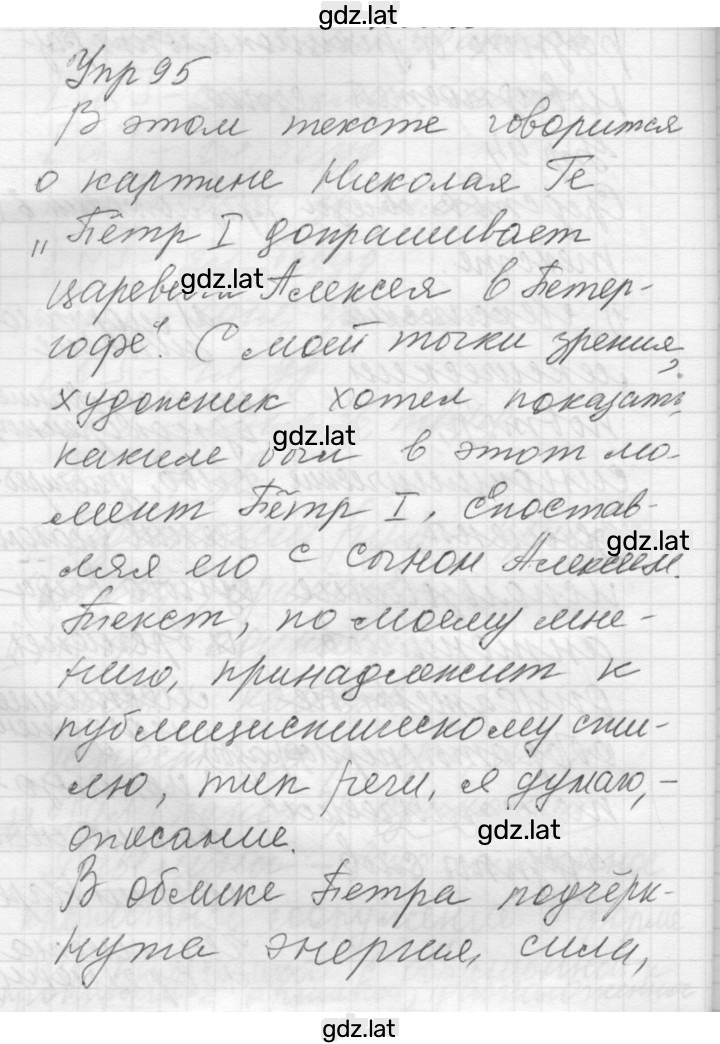 gdz.lat
Упр 95
В этом тексте говорится
о картине Николая Ге
„Пётр I допрашивает
царевича Алексея в Петер-
gdz.lat
гофе“. С моей точки зрения,
художник хотел показать,
gdz.lat
каким был в этот мо-
мент Пётр I, сопостав-
ляя его с сыном Алексеем.
gdz.lat
Текст, по моему мне-
нию, принадлежит к
публицистическому сти-
лю, тип речи, я думаю, -
описание.
gdz.lat
В облике Петра подчёрк-
нута энергия, сила,
gdz.lat